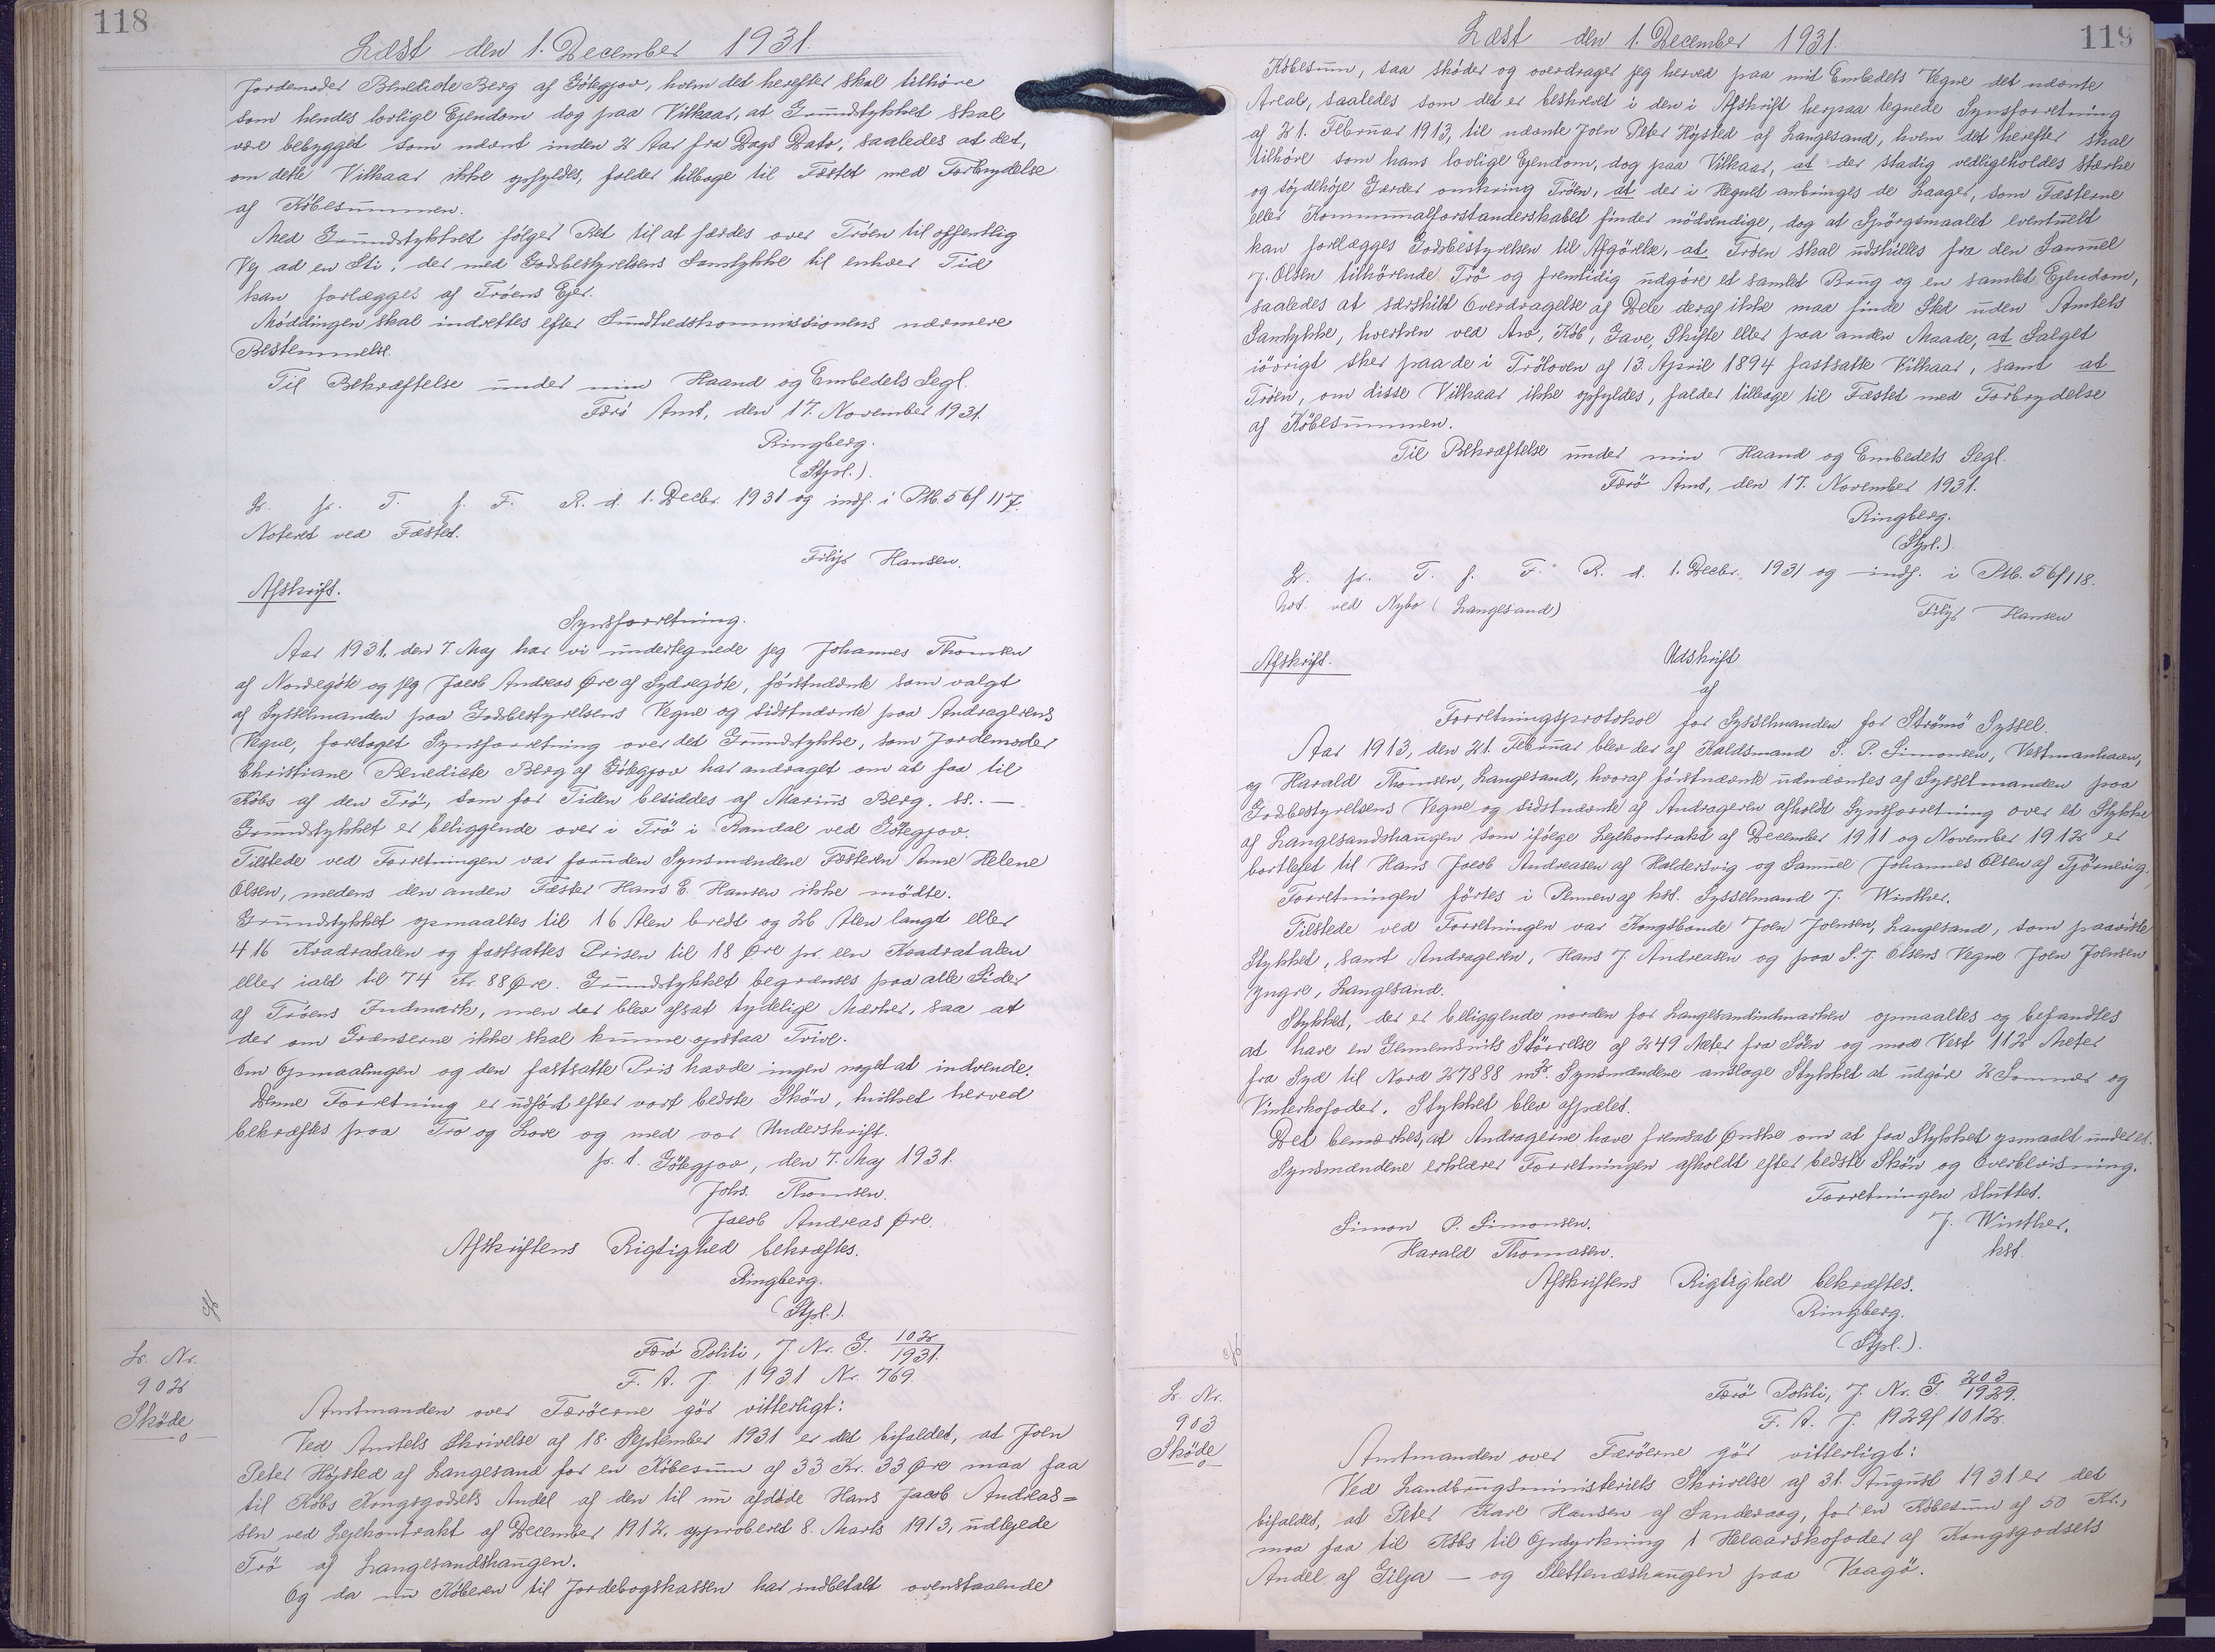 118
Læst den 1. December 1931.
Jordemoder Benedicte Berg af Götegjov, hvem det herefter skal tilhöre
som hendes lovlige Ejendom dog paa Vilkaar, at Grundstykket skal
være bebygget som nævnt inden 2 Aar fra Dags Dato, saaledes at det,
om dette Vilkaar ikke opfyldes, falder tilbage til Fæstet med Forbrydelse
af Købesummen.
Med Grundstykket følger Ret til at færdes over Trøen til offentlig
Vej ad en Sti, der med Godsbestyrelsens Samtykke til enhver Tid
kan forlægges af Trøens Ejer.
Møddingen skal indrettes efter Sundhedskommissionens nærmere
Bestemmelse.
Til Bekræftelse under min Haand og Embedets Segl.
Færö Amt, den 17. November 1931.
Ringberg.
(Stpl.).
L. p. T. f. F. R. d. 1. Decbr. 1931 og indf. i Ptb. 56f 117.
Noteret ved Fæstet.
Filip Hansen.
Afskrift.
Synsforretning.
Aar 1931, den 7. Maj har vi undertegnede jeg Johannes Thomsen
af Norregöte og jeg Jacob Andreas Øre af Sydregöte, förstnævnte som valgt
af Sysselmanden paa Godsbestyrelsens Vegne og sidstnævnte paa Andragerens
Vegne, foretaget Synsforretning over det Grundstykke, som Jordemoder
Christiane Benedicte Berg af Götegjov har andraget om at faa til
Købs af den Trö, som for Tiden besiddes af Marius Berg. ss.. —
Grundstykket er beliggende over i Trö i Randal ved Götegjov.
Tilstede ved Forretningen var foruden Synsmændene Fæsteren Anne Helene
Olsen, medens den anden Fæster Hans E. Hansen ikke mødte.
Grundstykket opmaaltes til 16 Alen bredt og 26 Alen langt eller
416 Kvadratalen og fastsattes Prisen til 18 Øre pr. een Kvadratalen
eller ialt til 74 Kr. 88 Øre. Grundstykket begrænses paa alle Sider
af Trøens Indmark, men der blev afsat tydelige Mærker, saa at
der om Grænserne ikke skal kunne opstaa Tvivl.
Om Opmaalingen og den fastsatte Pris havde ingen noget at indvende.
Denne Forretning er udført efter vort bedste Skøn, hvilket herved
bekræftes paa Tro og Love og med vor Underskrift.
p. t. Götegjov, den 7. Maj 1931.
Johs. Thomsen.
Jacob Andreas Øre.
Afskriftens Rigtighed bekræftes.
Ringberg.
(Stpl.).
L. Nr.
902
Sköde
Færö Politi, J. Nr. G. 102/1931.
F. A. J. 1931 Nr. 769.
Amtmanden over Færöerne gör vitterligt:
Ved Amtets Skrivelse af 18. September 1931 er det bifaldet, at Joen
Peter Højsted af Langesand for en Købesum af 33 Kr. 33 Øre maa faa
til Købs Kongsgodsets Andel af den til nu afdøde Hans Jacob Andreas=
sen ved Lejekontrakt af December 1912, approberet 8. Marts 1913, udlejede
Trö af Langesandshaugen.
Og da nu Køberen til Jordebogskassen har indbetalt ovenstaaende
119
Læst den 1. December 1931.
Købesum, saa sköder og overdrager jeg herved paa mit Embedets Vegne det nævnte
Areal, saaledes som det er beskrevet i den i Afskrift herpaa tegnede Synsforretning
af 21. Februar 1913, til nævnte Joen Peter Højsted af Langesand, hvem det herefter skal
tilhöre som hans lovlige Ejendom, dog paa Vilkaar, at der stadig vedligeholdes stærke
og tydehøje Gærder omkring Trøen, at der i Hegnet anbringes de Laager, som Fæsterne
eller Kommunalforstanderskabet finder nödvendige, dog at Spörgsmaalet eventuelt
kan forelægges Godsbestyrelsen til Afgörelse, at Trøen skal udskilles fra den Samuel
J. Olsen tilhørende Trö og fremtidig udgöre et samlet Brug og en samlet Ejendom,
saaledes at særskilt Overdragelse af Dele deraf ikke maa finde Sted uden Amtets
Samtykke, hverken ved Arv, Køb, Gave, Skifte eller paa anden Maade, at Salget
iövrigt sker paa de i Tröloven af 13. April 1894 fastsatte Vilkaar, samt at
Trøen, om disse Vilkaar ikke opfyldes, falder tilbage til Fæstet med Forbrydelse
af Købesummen.
Til Bekræftelse under min Haand og Embedets Segl.
Færö Amt, den 17. November 1931.
Ringberg.
(Stpl.).
L. p. T. f. F. R. d. 1. Decbr. 1931 og indf. i Ptb. 56f 118.
Not. ved Nybo (Langesand)
Filip Hansen
Afskrift.
Udskrift
af
Forretningsprotokol for Sysselmanden for Strømø Syssel.
Aar 1913, den 21. Februar blev der af Kaldsmand S. P. Simonsen, Vestmanhavn,
og Harald Thomsen, Langesand, hvoraf förstnævnte udnævntes af Sysselmanden paa
Godsbestyrelsens Vegne og sidstnævnte af Andrageren afholdt Synsforretning over et Stykke
af Langesandshaugen som ifölge Lejekontrakt af December 1911 og November 1912 er
bortlejet til Hans Jacob Andreasen af Haldersvig og Samuel Johannes Olsen af Tjörnevig.
Forretningen förtes i Pennen af kst. Sysselmand J. Winther.
Tilstede ved Forretningen var Kongsbonde Joen Joensen, Langesand, som paaviste
Stykket, samt Andrageren, Hans J. Andreasen og paa S. J. Olsens Vegne Joen Joensen
yngre, Langesand.
Stykket, der er beliggende norden for Langesandindmarken opmaaltes og befandtes
at have en Gennemsnits Störrelse af 249 Meter fra Söen og mod Vest 112 Meter
fra Syd til Nord 27888 m². Synsmændene ansloge Stykket at udgöre 2 Sommer og
Vinterkofoder. Stykket blev afpælet.
Det bemærkes, at Andragerne have fremsat Ønske om at faa Stykket opmaalt under et.
Synsmændene erklærer Forretningen afholdt efter bedste Skön og Overbevisning.
Forretningen sluttet.
Simon P. Simonsen.
J. Winther.
Harald Thomasen.
kst.
Afskriftens Rigtighed bekræftes.
Ringberg.
(Stpl.).
L. Nr.
903
Sköde
Færö Politi, J. Nr. G. 203/1929.
F. A. J. 1929f 1012.
Amtmanden over Færöerne gör vitterligt:
Ved Landbrugsministeriets Skrivelse af 31. August 1931 er det
bifaldet, at Peter Karl Hansen af Sandevaag, for en Købesum af 50 Kr.,
maa faa til Købs til Opdyrkning 1 Helaarskofoder af Kongsgodsets
Andel af Gilja — og Slettenæshaugen paa Vaagö.